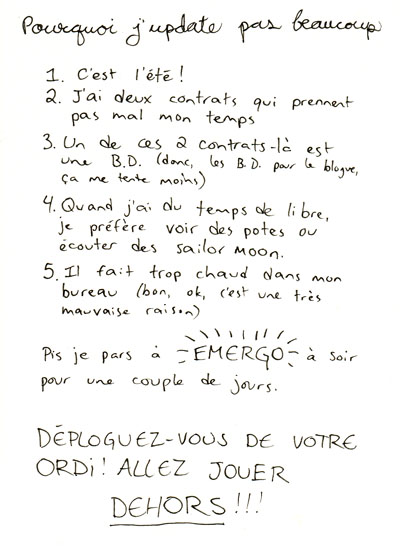 Pourquoi j'update pas beaucoup
1. C'est l'été!
2. J'ai deux contrats qui prennent
pas mal mon temps
3. Un de ces 2 contrats-là est
une B.D. (donc, les B.D. pour le blogue,
ça me tente moins)
4. Quand j'ai du temps de libre,
je préfère voir des potes ou
écouter des sailor moon.
5. Il fait trop chaud dans mon
bureau (bon, ok, c'est une très
mauvaise raison)
Pis je pars à EMERGO à soir
pour une couple de jours.
DÉPLOGUEZ-VOUS DE VOTRE
ORDI! ALLEZ JOUER
DEHORS!!!